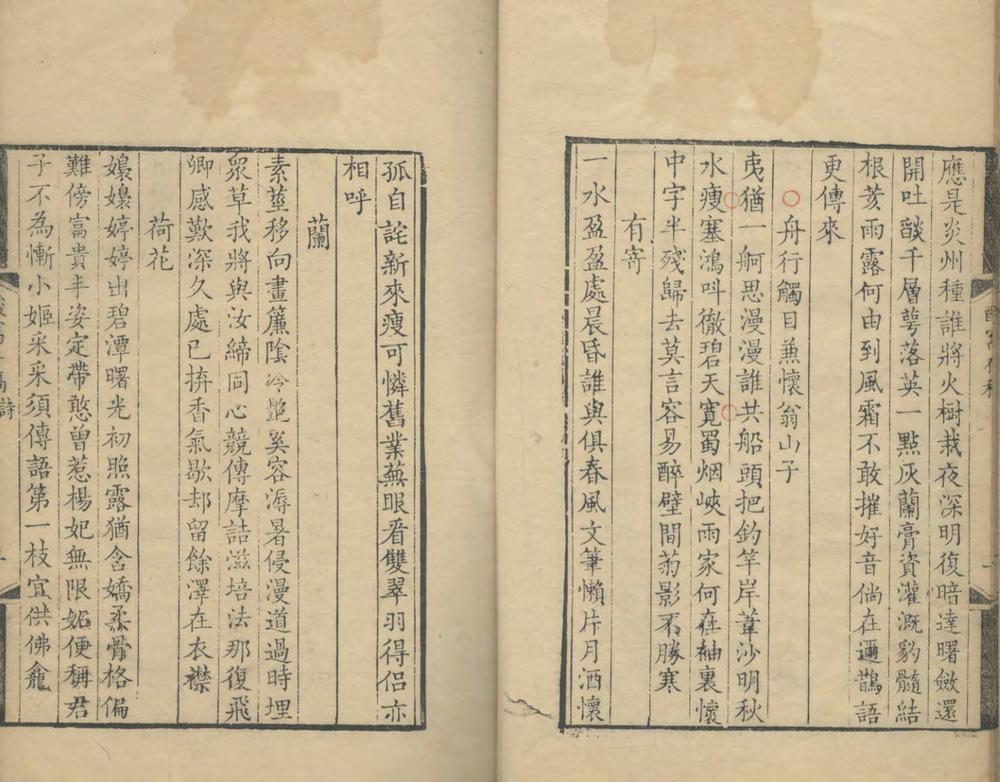 應是炎州種誰將火樹栽夜深明復暗達曙斂還
開吐燄千層蕚落英一點灰蘭膏資灌溉豹髓結
根荄雨露何由到風霜不敢摧好音倘在邇鵲語
更傳來
舟行觸目兼懷翁山子
夷猶一舸思漫漫誰共船頭把釣竿岸葦沙明秋
水瘦塞鴻呌徹碧天寬蜀烟峽雨家何在袖裏懷
中字半殘歸去莫言容易醉壁間菊影不勝寒
有寄
一水盈盈處晨昏誰與俱春風文筆懶片月酒懷
孤自詫新來瘦可憐舊業蕪眼看雙翠羽得侶亦
相呼
蘭
素莖移向畫簾陰冷艷奚容溽暑侵漫道過時埋
眾草我將與汝締同心競傳摩詰滋培法那復飛
卿感歎深久處已拚香氣歇却留餘澤在衣襟
荷花
嬝嬝婷婷出碧潭曙光初照露猶含嬌柔骨格偏
難傍富貴丰姿定帶憨曾惹楊妃無限妬便稱君
子不為慚小姬采采須傳語第一枝宜供佛龕